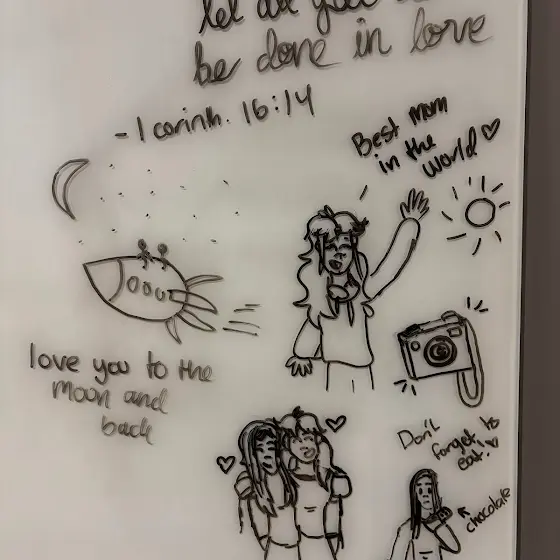 let all you
be done in love
- 1 corinth. 16:14
Best mom
in the
world ♡
love you to the
moon and
back
Don't
forget to
eat!
chocolate